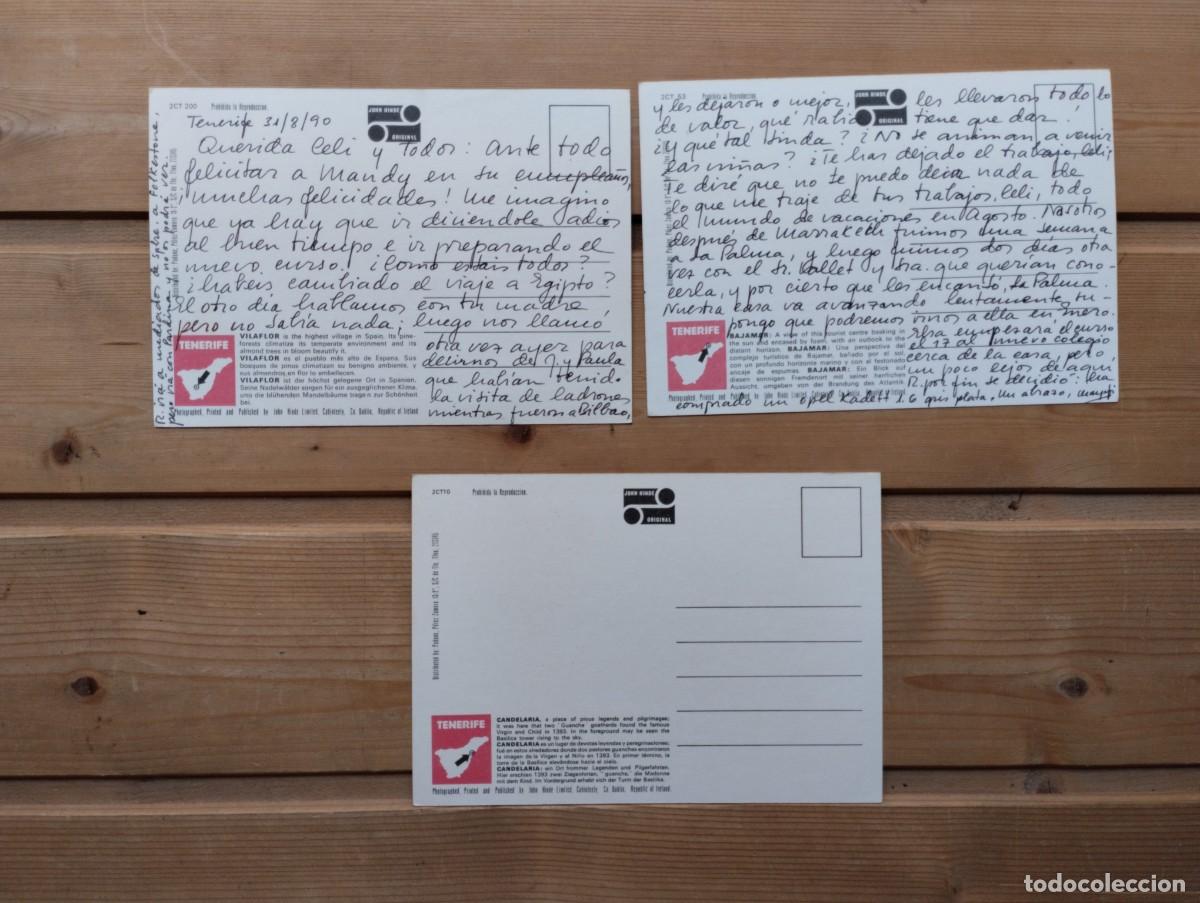 2CT 200 Prohibida la Reproduccion.
JOHN HINDE
ORIGINAL
Tenerife 31/8/90
Querida Celi y Todos: Ante todo
felicitar a Mandy en su cumpleaños,
¡muchas felicidades! Me imagino
que ya hay que ir diciendole adios
al buen tiempo e ir preparando el
nuevo curso. ¿Como estais todos?
¿habeis cambiado el viaje a Egipto?
El otro día hablamos con tu madre
pero no sabia nada; luego nos llamó
otra vez ayer para
decirnos del J. y Paula
que habían tenido
la visita de ladrones
mientras fueron a Bilbao,
R. na a mediados de Spbre. a Folkestone,
pero va con Paloma y no os podrá ver.
TENERIFE
VILAFLOR is the highest village in Spain. Its pine-
forests climatize its temperate environment and its
almond trees in bloom beautify it.
VILAFLOR es el pueblo más alto de Espana. Sus
bosques de pinos climatizan su benigno ambiente, y
sus almendros en flor lo embellecen.
VILAFLOR ist der höchst gelegene Ort in Spanien.
Seine Nadelwälder geben ein ausgeglichenes Klima
und die blühenden Mandelbäume tragen zur Schönheit
bei.
Photographed, Printed and Published by John Hinde Limited, Cabinteely, Co. Dublin, Republic of Ireland
2CT 53 Prohibida la Reproduccion.
y les dejaron o mejor, les llevaron todo lo
de valor, qué rabia tiene que dar.
¿Y qué tal Linda? ¿No se animan a venir
las niñas? ¿Te has dejado el trabajo, Celi,
Te diré que no te puedo decir nada de
lo que me traje de tus trabajos, Celi, todo
el mundo de vacaciones en Agosto. Nosotros
después de Marrakech fuimos una semana
a La Palma, y luego fuimos dos días otra
vez con el Sr. Vallet y Sra. que querían cono-
cerla, y por cierto que les encantó, La Palma.
Nuestra casa va avanzando lentamente, su-
pongo que podremos irnos a ella en Enero.
Elsa empezará el curso
el 17 al nuevo colegio
cerca de la casa, pero,
un poco lejos de aquí
R. por fin se decidió: ha
comprado un Opel Kadet 1.6 gris plata. Un abrazo,
TENERIFE
BAJAMAR: A view of this tourist centre basking in
the sun and encased by foam, with an outlook to the
distant horizon. BAJAMAR: Una perspectiva del
complejo turistico de Bajamar, bañado por el sol,
con un profundo horizonte marino y con el festonado
encaje de espumas. BAJAMAR: Ein Blick auf
diesen sonnigen Fremdenort mit seiner herrlichen
Aussicht, umgeben von der Brandung des Atlantik.
Photographed, Printed and Published by John Hinde Limited, Cabinteely, Co. Dublin, Republic of Ireland
2CT10 Prohibida la Reproduccion.
JOHN HINDE
ORIGINAL
TENERIFE
CANDELARIA, a place of pious legends and pilgrimages;
it was here that two "Guanche" goatherds found the famous
Virgin and Child in 1393. In the foreground may be seen the
Basilica tower rising to the sky.
CANDELARIA es un lugar de devotas leyendas y peregrinaciones;
fué en estos alrededores donde dos pastores guanches encontraron
la imagen de la Virgen y el Niño en 1393. En primer término, la
torre de la Basilica elevándose hacia el cielo.
CANDELARIA: ein Ort frommer Legenden und Pilgerfahrten.
Hier erschien 1393 zwei Ziegenhirten, "guanche," die Madonne
mit dem Kind. Im Vordergrund erhebt sich der Turm der Basilika.
Photographed, Printed and Published by John Hinde Limited, Cabinteely, Co. Dublin, Republic of Ireland.
todocoleccion